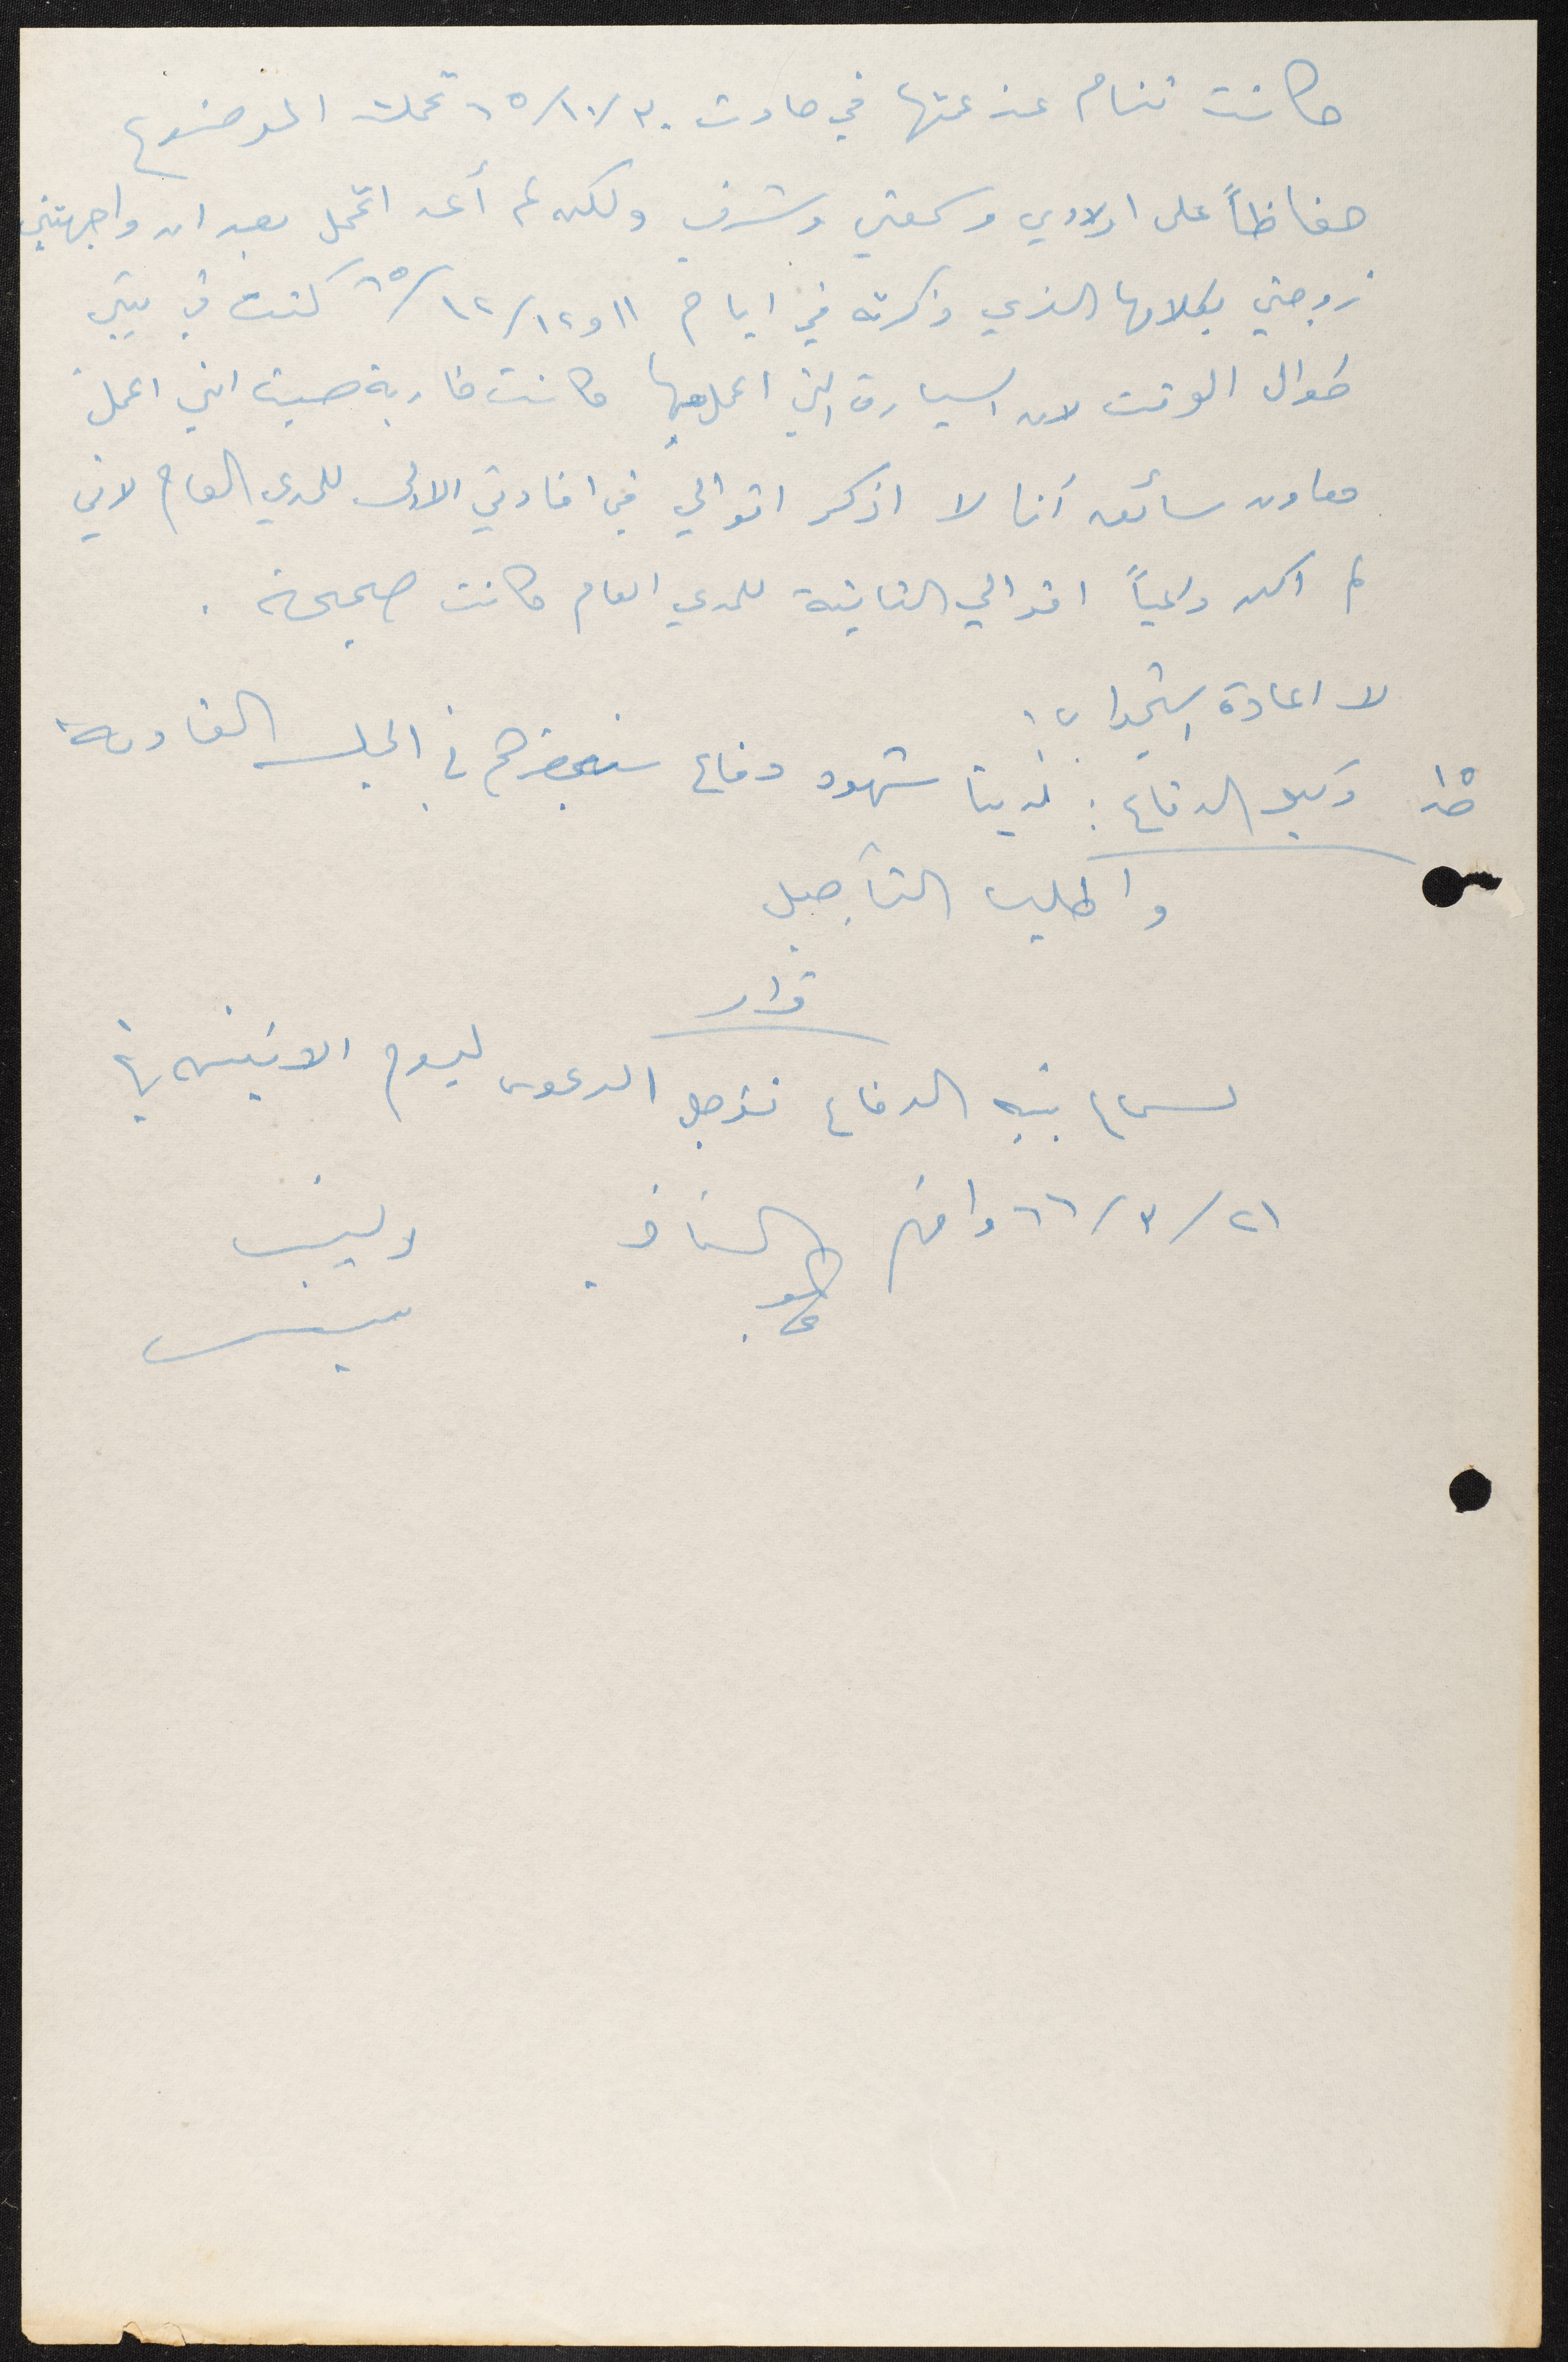 وكانت تنام عند عمتها في حادث ٣٠/١٠/٦٥ تحملت الموضوع
حفاظاً على اولادي وسمعتي وشرفي ولكن لم أعد اتحمل بعد ان واجهتني
زوجتي بكلامها الذي ذكرته في ايام ١١ و١٢/١٢/٦٥ كنت في بيتي
طوال الوقت لان السيارة التي اعمل بها كانت خاربة حيث انني اعمل
معاون سائق أنا لا اذكر اقوالي في افادتي الاولى للمدعي العام لاني
لم اكن واعياً اقوالي الثانية للمدعي العام كانت صحيحة .
لا اعادة استجواب .
وكيل الدفاع : لدينا شهود دفاع سنحضرهم في الجلسة القادمة
واطلب التأجيل
قرار
لسماع بينة الدفاع نؤجل الدعوى ليوم الاثنين في
٢١/٣/٦٦ وافهم